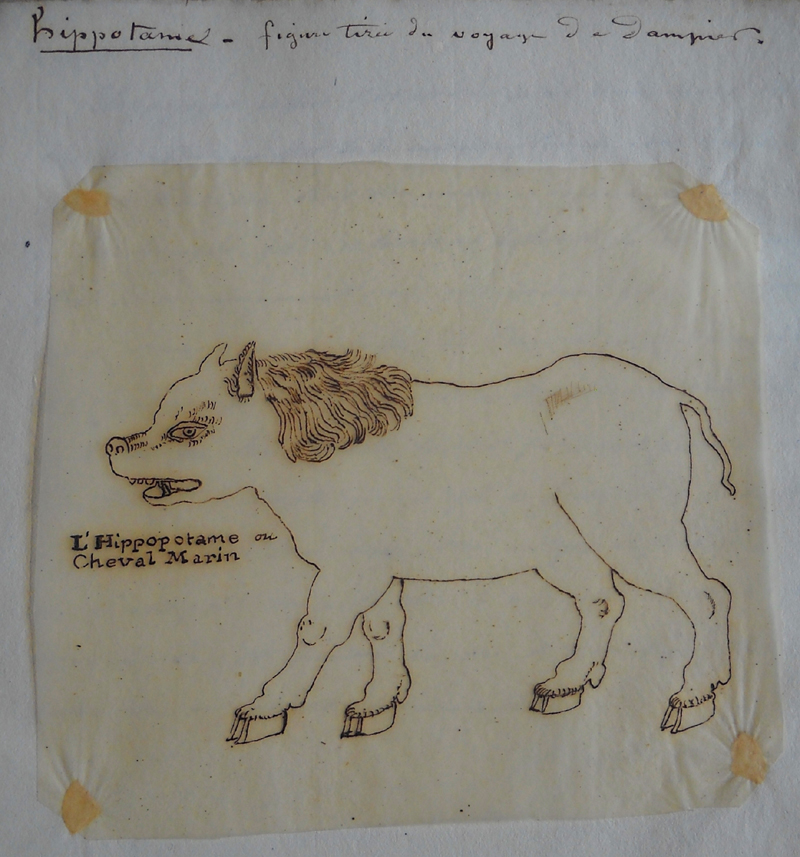 hippotame - figure tirée du voyage de Dampier.
L'Hippopotame ou
Cheval Marin